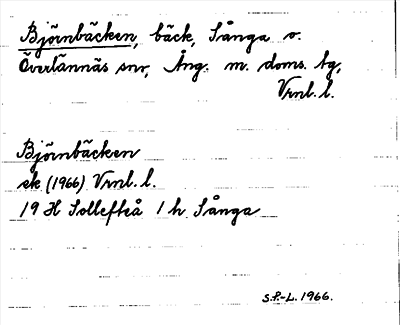 Björnbäcken, bäck, Sånga o.
Överlännäs snr, Ång. m. doms. tg,
Vrnl. l.
Björnbäcken
ek (1966) Vrnl. l.
19 H Sollefteå 1 h Sånga
S.P.-L. 1966.